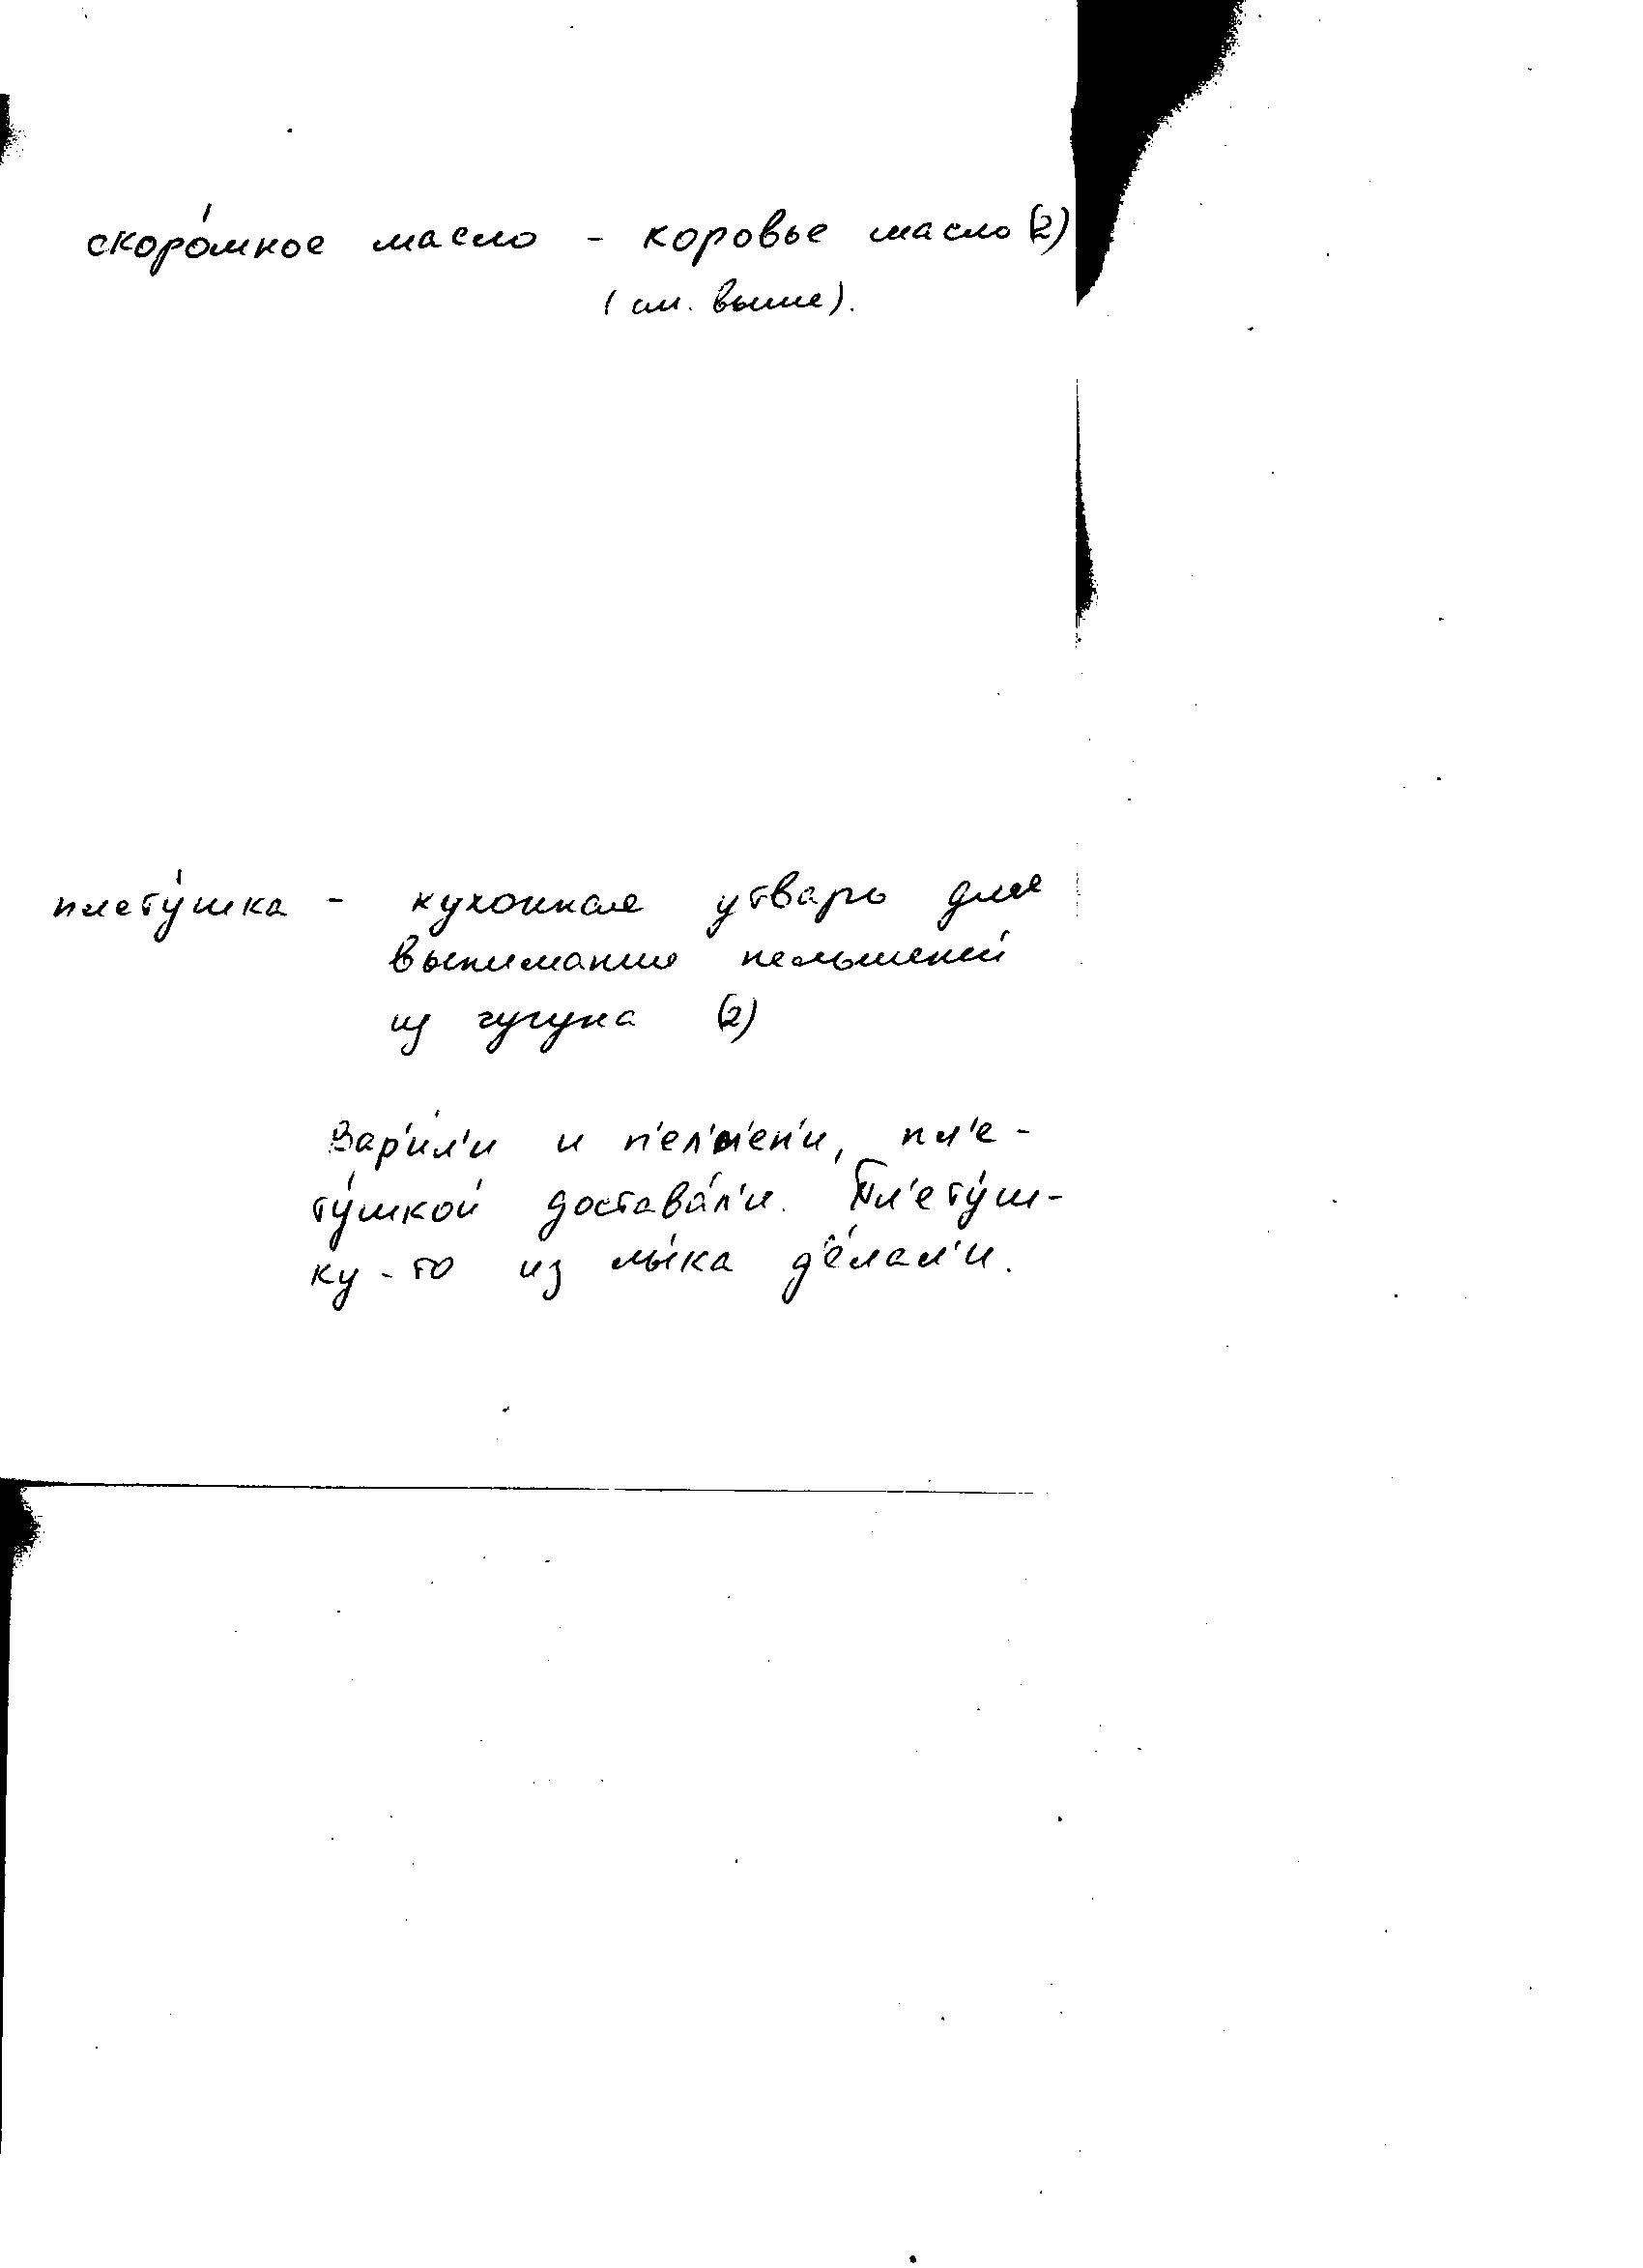 скоро́мное масло - коровье масло (2)
(см. выше).
плету́шка - кухонная утварь для
вынимания пельменей
из чугуна (2)
Вар'и́л'и и п'ел'м'ен'и, пл'е-
ту́шкой достава́л'и. Пл'ету́ш-
ку-то из лы́ка д'е́лал'и.